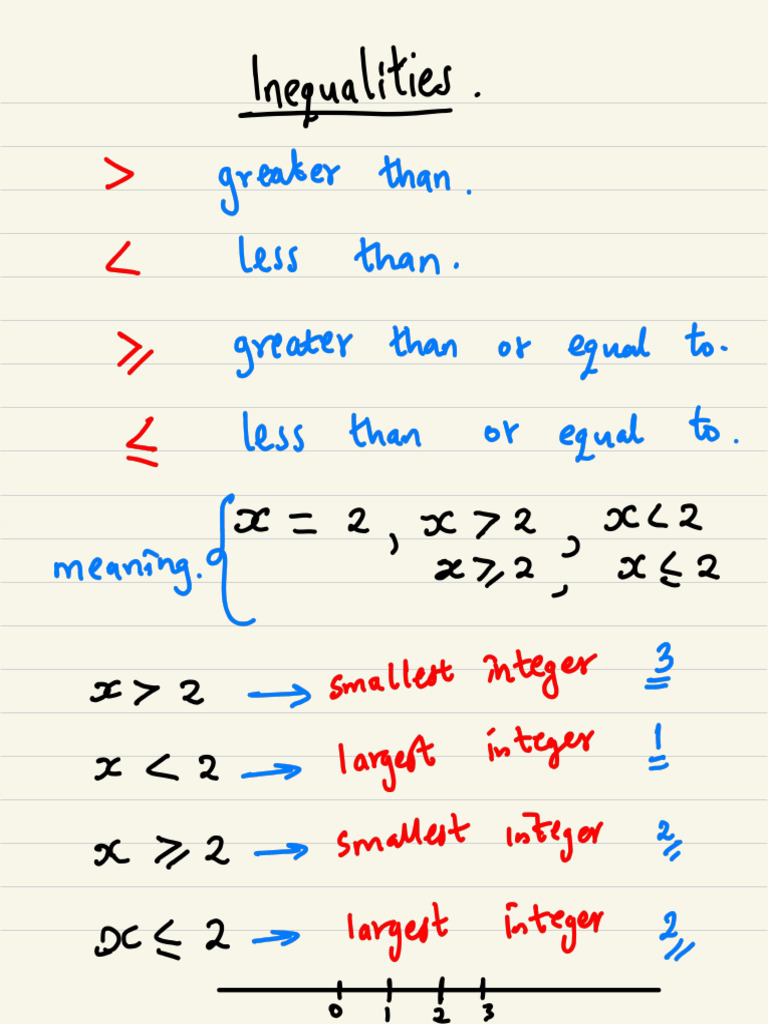 Inequalities.
> greater than.
< less than.
⩾ greater than or equal to.
≤ less than or equal to.
meaning. { x = 2 , x > 2 , x < 2
x ⩾ 2 , x ≤ 2
x > 2 → smallest integer 3
x < 2 → largest integer 1
x ⩾ 2 → smallest integer 2
x ≤ 2 → largest integer 2
0 1 2 3